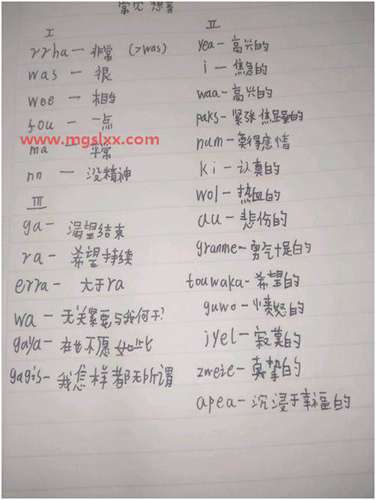 常见想音
I
rrha — 非常 (>was)
was — 很
wee — 相当
fou — 一点
ma 平常
nn — 没精神
III
ga — 渴望结束
ra — 希望持续
erra — 大于ra
wa — 无关紧要与我何干?
gaya — 在也不愿如此
gagis — 我怎样都无所谓
II
yea — 高兴的
i — 焦急的
waa — 高兴的
paks — 紧张焦虑的
num — 莫得感情
ki — 认真的
wol — 热血的
au — 悲伤的
granme — 勇气十足的
touwaka — 希望的
guwo — 愤怒的
jyel — 寂寞的
zweie — 真挚的
apea — 沉浸于幸福的
www.mgslxx.com